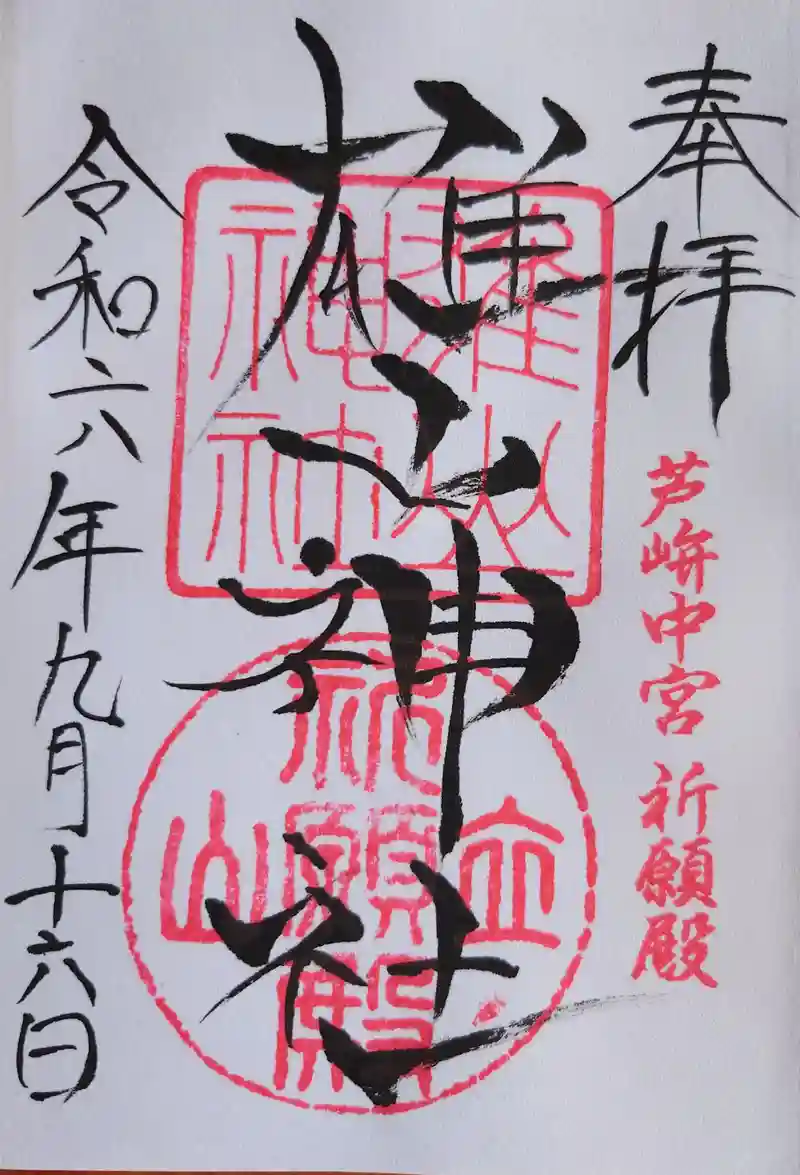 奉拝
芦峅中宮 祈願殿
雄山神社
雄山
神社
立山
祈願殿
令和六年九月十六日